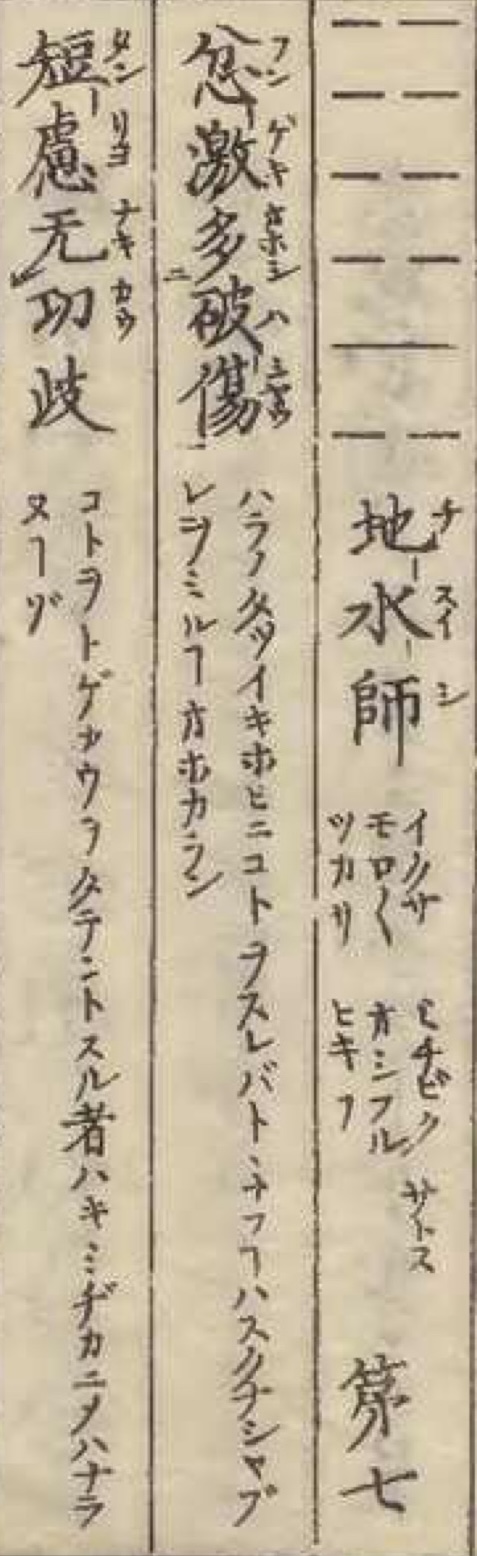 地水師 第七
チ スイ シ
イクサ ミチビク サトス
モロ〱 オシフル
ツカサ ヒキフ
忿激多破傷
フン ゲキ オホシ ハ シヤウ
ハラノタツイキホヒニコトヲスレバトヽナフヿハスクナシヤブ
レヲミルヿオホカラン
短慮无功歧
タン リヨ ナキ カウ
コトヲトゲカウヲタテントスル者ハキミヂカニメハナラ
ヌヿゾ